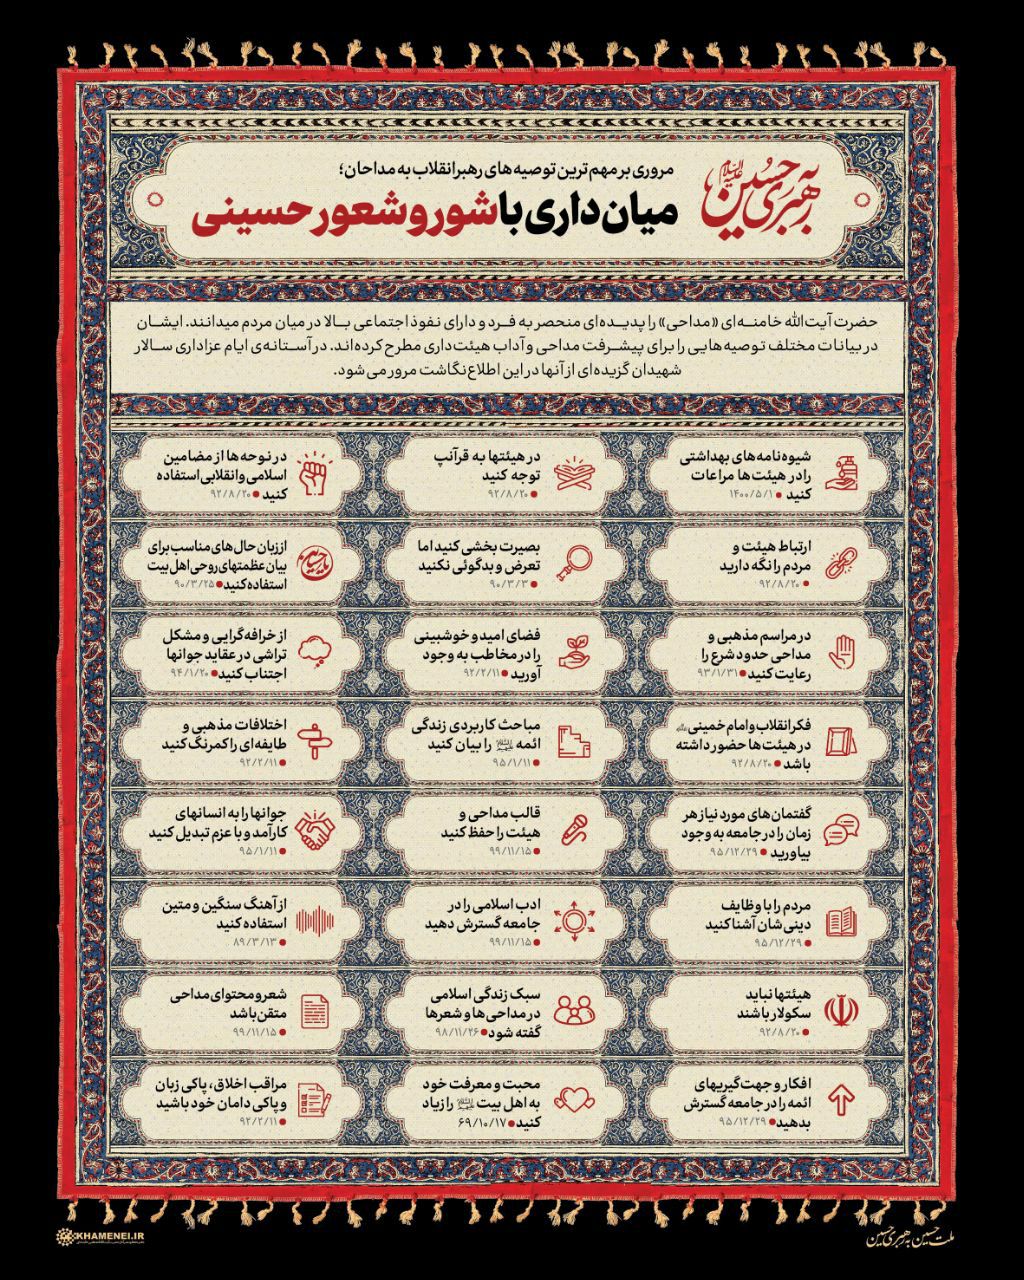 به رهبری حسین علیه السلام
مروری بر مهم‌ترین توصیه‌های رهبر انقلاب به مداحان؛
میان‌داری با شور و شعور حسینی
حضرت آیت‌الله خامنه‌ای «مداحی» را پدیده‌ای منحصر به فرد و دارای نفوذ اجتماعی بالا در میان مردم میدانند. ایشان
در بیانات مختلف توصیه‌هایی را برای پیشرفت مداحی و آداب هیئت‌داری مطرح کرده‌اند. در آستانه‌ی ایام عزاداری سالار
شهیدان گزیده‌ای از آنها در این اطلاع‌نگاشت مرور می‌شود.
شیوه‌نامه‌های بهداشتی
را در هیئت‌ها مراعات
کنید ۱۴۰۰/۵/۱
در هیئتها به قرآنپ
توجه کنید
۹۲/۸/۲۰
در نوحه‌ها از مضامین
اسلامی و انقلابی استفاده
کنید ۹۲/۸/۲۰
ارتباط هیئت و
مردم را نگه دارید
۹۲/۸/۲۰
بصیرت بخشی کنید اما
تعرض و بدگوئی نکنید
۹۰/۳/۳
از زبان حال‌های مناسب برای
بیان عظمتهای روحی اهل بیت
استفاده کنید ۹۰/۳/۲۵
در مراسم مذهبی و
مداحی حدود شرع را
رعایت کنید ۹۳/۱/۳۱
فضای امید و خوشبینی
را در مخاطب به وجود
آورید ۹۲/۲/۱۱
از خرافه‌گرایی و مشکل
تراشی در عقاید جوانها
اجتناب کنید ۹۴/۱/۲۰
فکر انقلاب و امام خمینی
در هیئت‌ها حضور داشته
باشد ۹۲/۸/۲۰
مباحث کاربردی زندگی
ائمه را بیان کنید
۹۵/۱/۱۱
اختلافات مذهبی و
طایفه‌ای را کمرنگ کنید
۹۲/۲/۱۱
گفتمان‌های مورد نیاز هر
زمان را در جامعه به وجود
بیاورید ۹۵/۱۲/۲۹
قالب مداحی و
هیئت را حفظ کنید
۹۹/۱۱/۱۵
جوانها را به انسانهای
کارآمد و با عزم تبدیل کنید
۹۵/۱/۱۱
مردم را با وظایف
دینی‌شان آشنا کنید
۹۵/۱۲/۲۹
ادب اسلامی را در
جامعه گسترش دهید
۹۹/۱۱/۱۵
از آهنگ سنگین و متین
استفاده کنید
۸۹/۳/۱۳
هیئتها نباید
سکولار باشند
۹۲/۸/۲۰
سبک زندگی اسلامی
در مداحی‌ها و شعرها
گفته شود ۹۸/۱۱/۲۶
شعر و محتوای مداحی
متقن باشد
۹۹/۱۱/۱۵
افکار و جهت‌گیریهای
ائمه را در جامعه گسترش
بدهید ۹۵/۱۲/۲۹
محبت و معرفت خود
به اهل بیت را زیاد
کنید ۶۹/۱۰/۱۷
مراقب اخلاق، پاکی زبان
و پاکی دامان خود باشید
۹۲/۲/۱۱
ملت حسین به رهبری حسین
KHAMENEI.IR